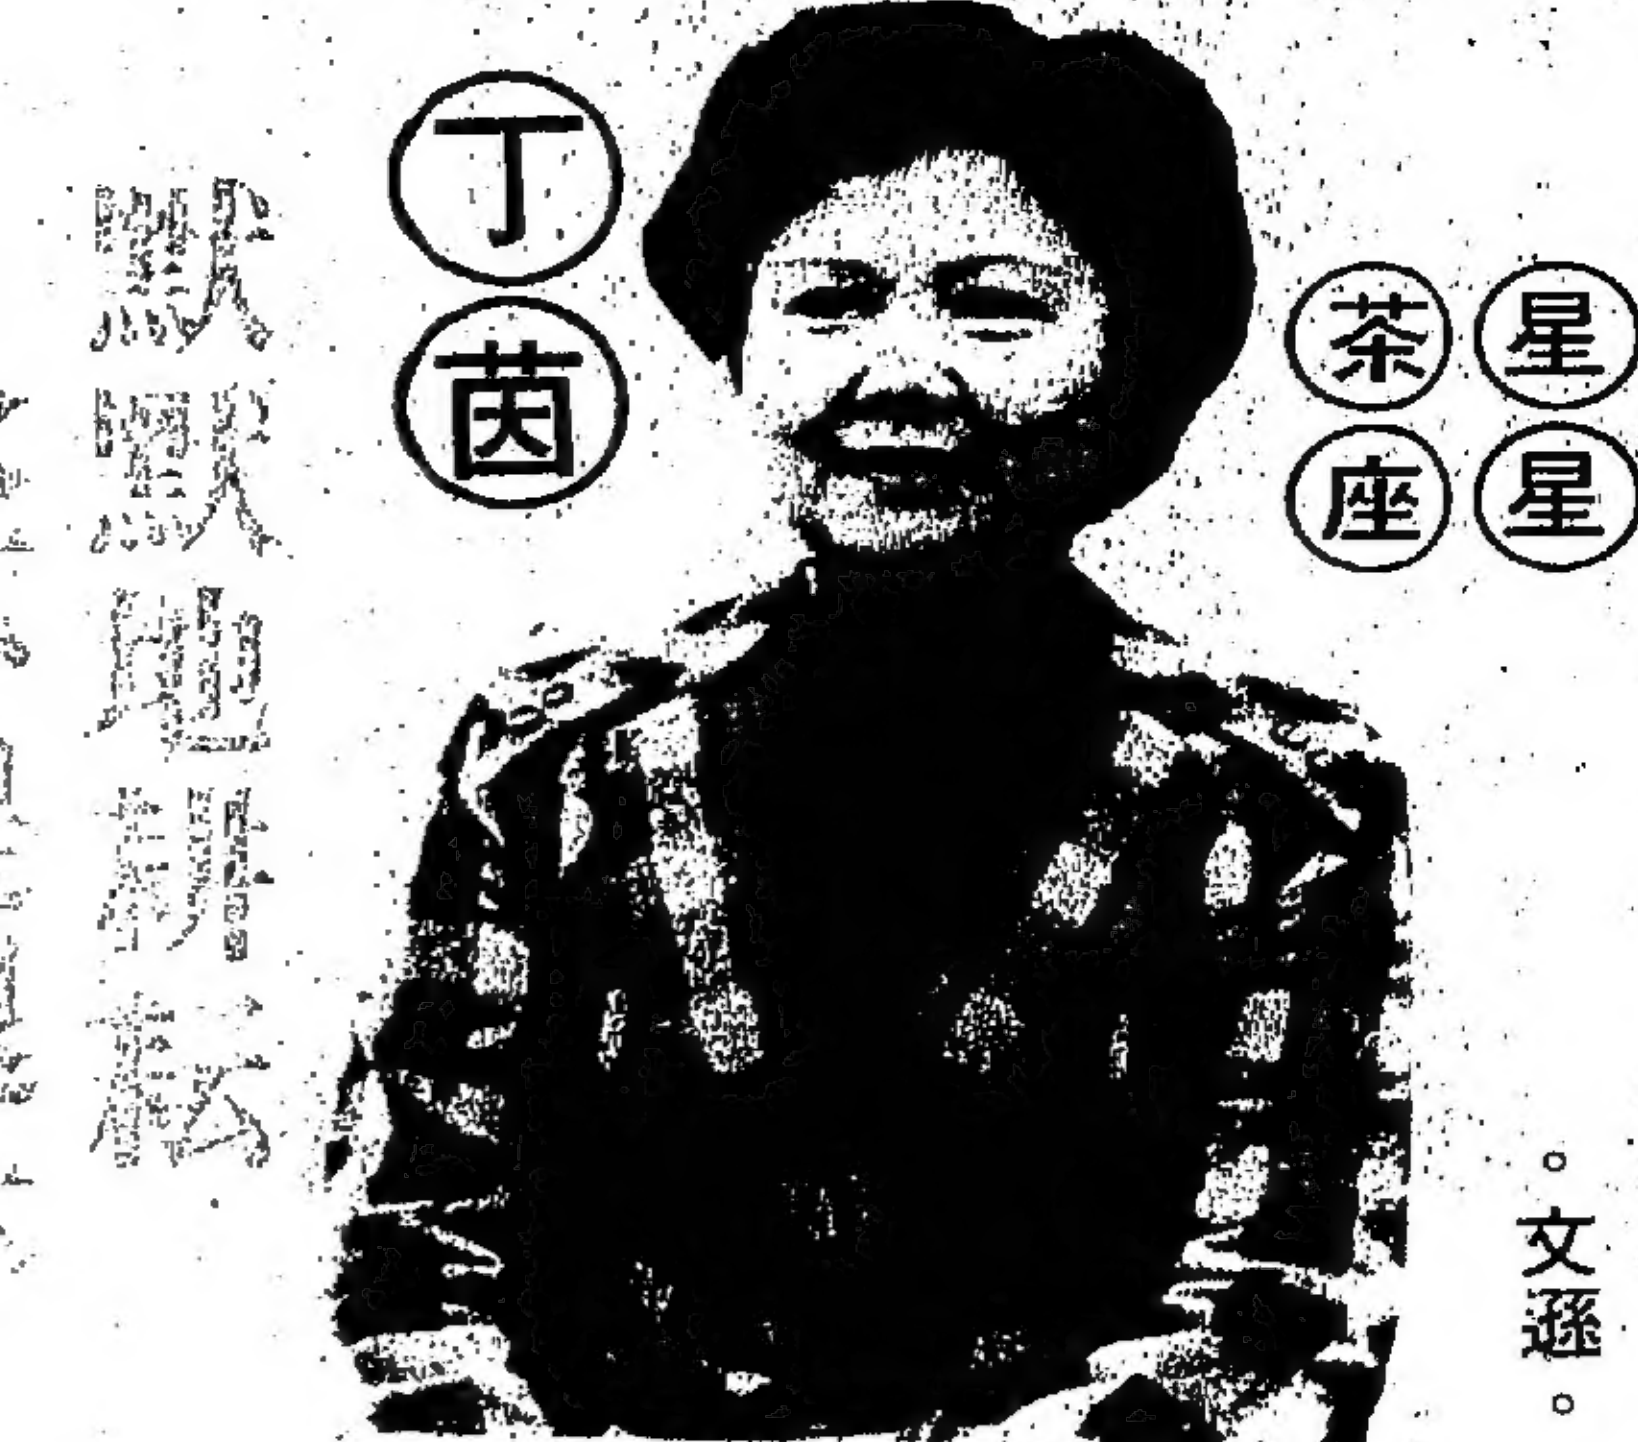 星星
茶座
。文遜。
丁茵
默默地耕耘